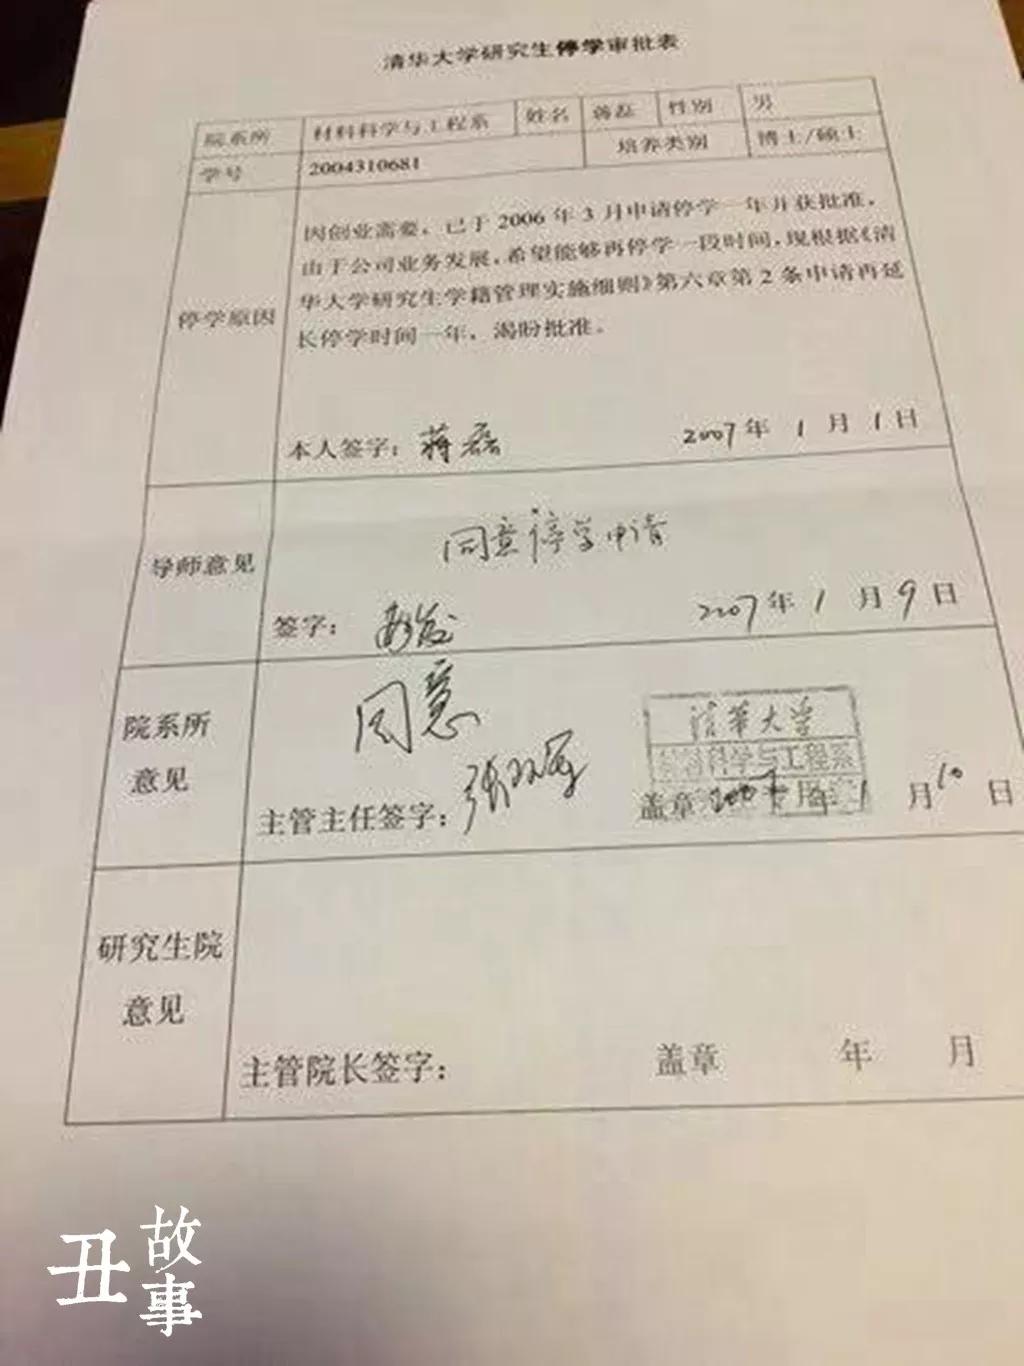 清华大学研究生停学审批表
院系所 材料科学与工程系 姓名 蒋磊 性别 男
学号 2004310681 培养类别 博士/硕士
因创业需要,已于 2006 年 3 月申请停学一年并获批准,
由于公司业务发展,希望能够再停学一段时间,现根据《清
华大学研究生学籍管理实施细则》第六章第 2 条申请再延
停学原因
长停学时间一年,渴盼批准。
本人签字: 蒋磊 2007 年 1 月 1 日
同意停学申请
导师意见
签字: 2007 年 1 月 9 日
同意
院系所
意见
清华大学
材料科学与工程系
主管主任签字: 盖章 2007 年 1 月 10 日
研究生院
意见
主管院长签字: 盖章 年 月
丑故事